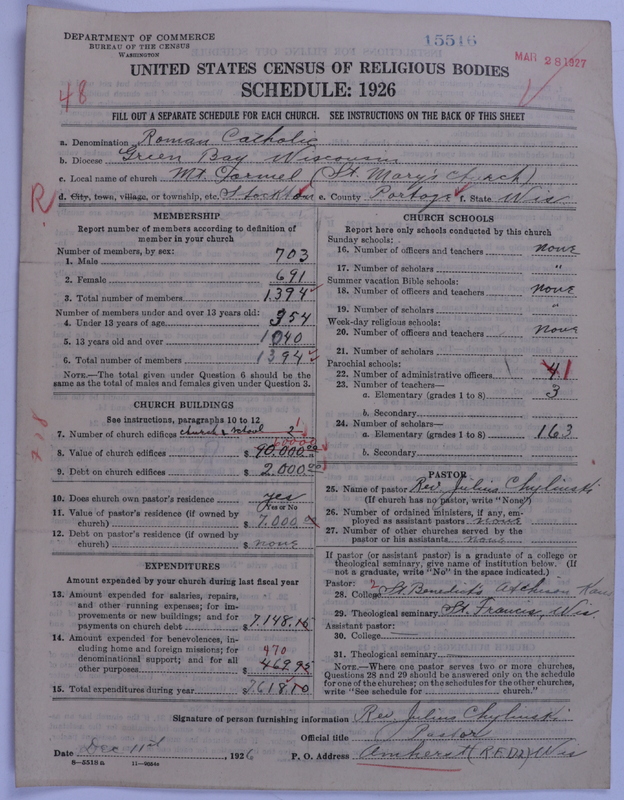 DEPARTMENT OF COMMERCE
BUREAU OF THE CENSUS
WASHINGTON
15516
MAR 28 1927
UNITED STATES CENSUS OF RELIGIOUS BODIES
SCHEDULE: 1926
48
FILL OUT A SEPARATE SCHEDULE FOR EACH CHURCH. SEE INSTRUCTIONS ON THE BACK OF THIS SHEET
a. Denomination Roman Catholic
b. Diocese Green Bay Wisconsin
c. Local name of church Mt Carmel (St. Mary's Church)
R
d. City, town, village, or township, etc. Stockton e. County Portage f. State Wis
MEMBERSHIP
Report number of members according to definition of member in your church
Number of members, by sex:
1. Male 703
2. Female 691
3. Total number of members 1394
Number of members under and over 13 years old:
4. Under 13 years of age 354
5. 13 years old and over 1040
6. Total number of members 1394
NOTE.—The total given under Question 6 should be
same as the total of males and females given under Question 3.
CHURCH BUILDINGS
See instructions, paragraphs 10 to 12
7. Number of church edifices church & school 2 1
8. Value of church edifices $ 90.000.00 60000
9. Debt on church edifices $ 2.000.00
10. Does church own pastor's residence yes
Yes or No
11. Value of pastor's residence (if owned by
church) $ 7.000
12. Debt on pastor's residence (if owned by
church) $ none
EXPENDITURES
Amount expended by your church during last fiscal year
13. Amount expended for salaries, repairs,
and other running expenses; for im-
provements or new buildings; and for
payments on church debt $ 7.148.15
14. Amount expended for benevolences, in-
cluding home and foreign missions; for
denominational support; and for all
other purposes $ 469.95
470
15. Total expenditures during year $ 7.618.10
CHURCH SCHOOLS
Report here only schools conducted by this church
Sunday schools:
16. Number of officers and teachers none
17. Number of scholars "
Summer vacation Bible schools:
18. Number of officers and teachers none
19. Number of scholars "
Week-day religious schools:
20. Number of officers and teachers none
21. Number of scholars
Parochial schools:
22. Number of administrative officers 4 1
23. Number of teachers—
a. Elementary (grades 1 to 8) 3
b. Secondary
24. Number of scholars—
a. Elementary (grades 1 to 8) 163
b. Secondary
PASTOR
25. Name of pastor Rev. Julius Chylinski
(If church has no pastor, write "None")
26. Number of ordained ministers, if any, em-
ployed as assistant pastors none
27. Number of other churches served by the
pastor or his assistants none
If pastor (or assistant pastor) is a graduate of a college or
theological seminary, give name of institution below. (If
not a graduate, write "No" in the space indicated.)
Pastor:
28. College 2 St. Benedict's Atchison Kan
29. Theological seminary St. Francis, Wis.
Assistant pastor:
30. College
31. Theological seminary
NOTE.—Where one pastor serves two or more churches,
Questions 28 and 29 should be answered only on the schedule
for one of the churches; on the schedules for the other churches,
write "See schedule for church."
Signature of person furnishing information Rev. Julius Chylinski
Official title Pastor
Date Dec 11th, 1926 P. O. Address Amherst (RFD2) Wis
8—5518a 11—9664a